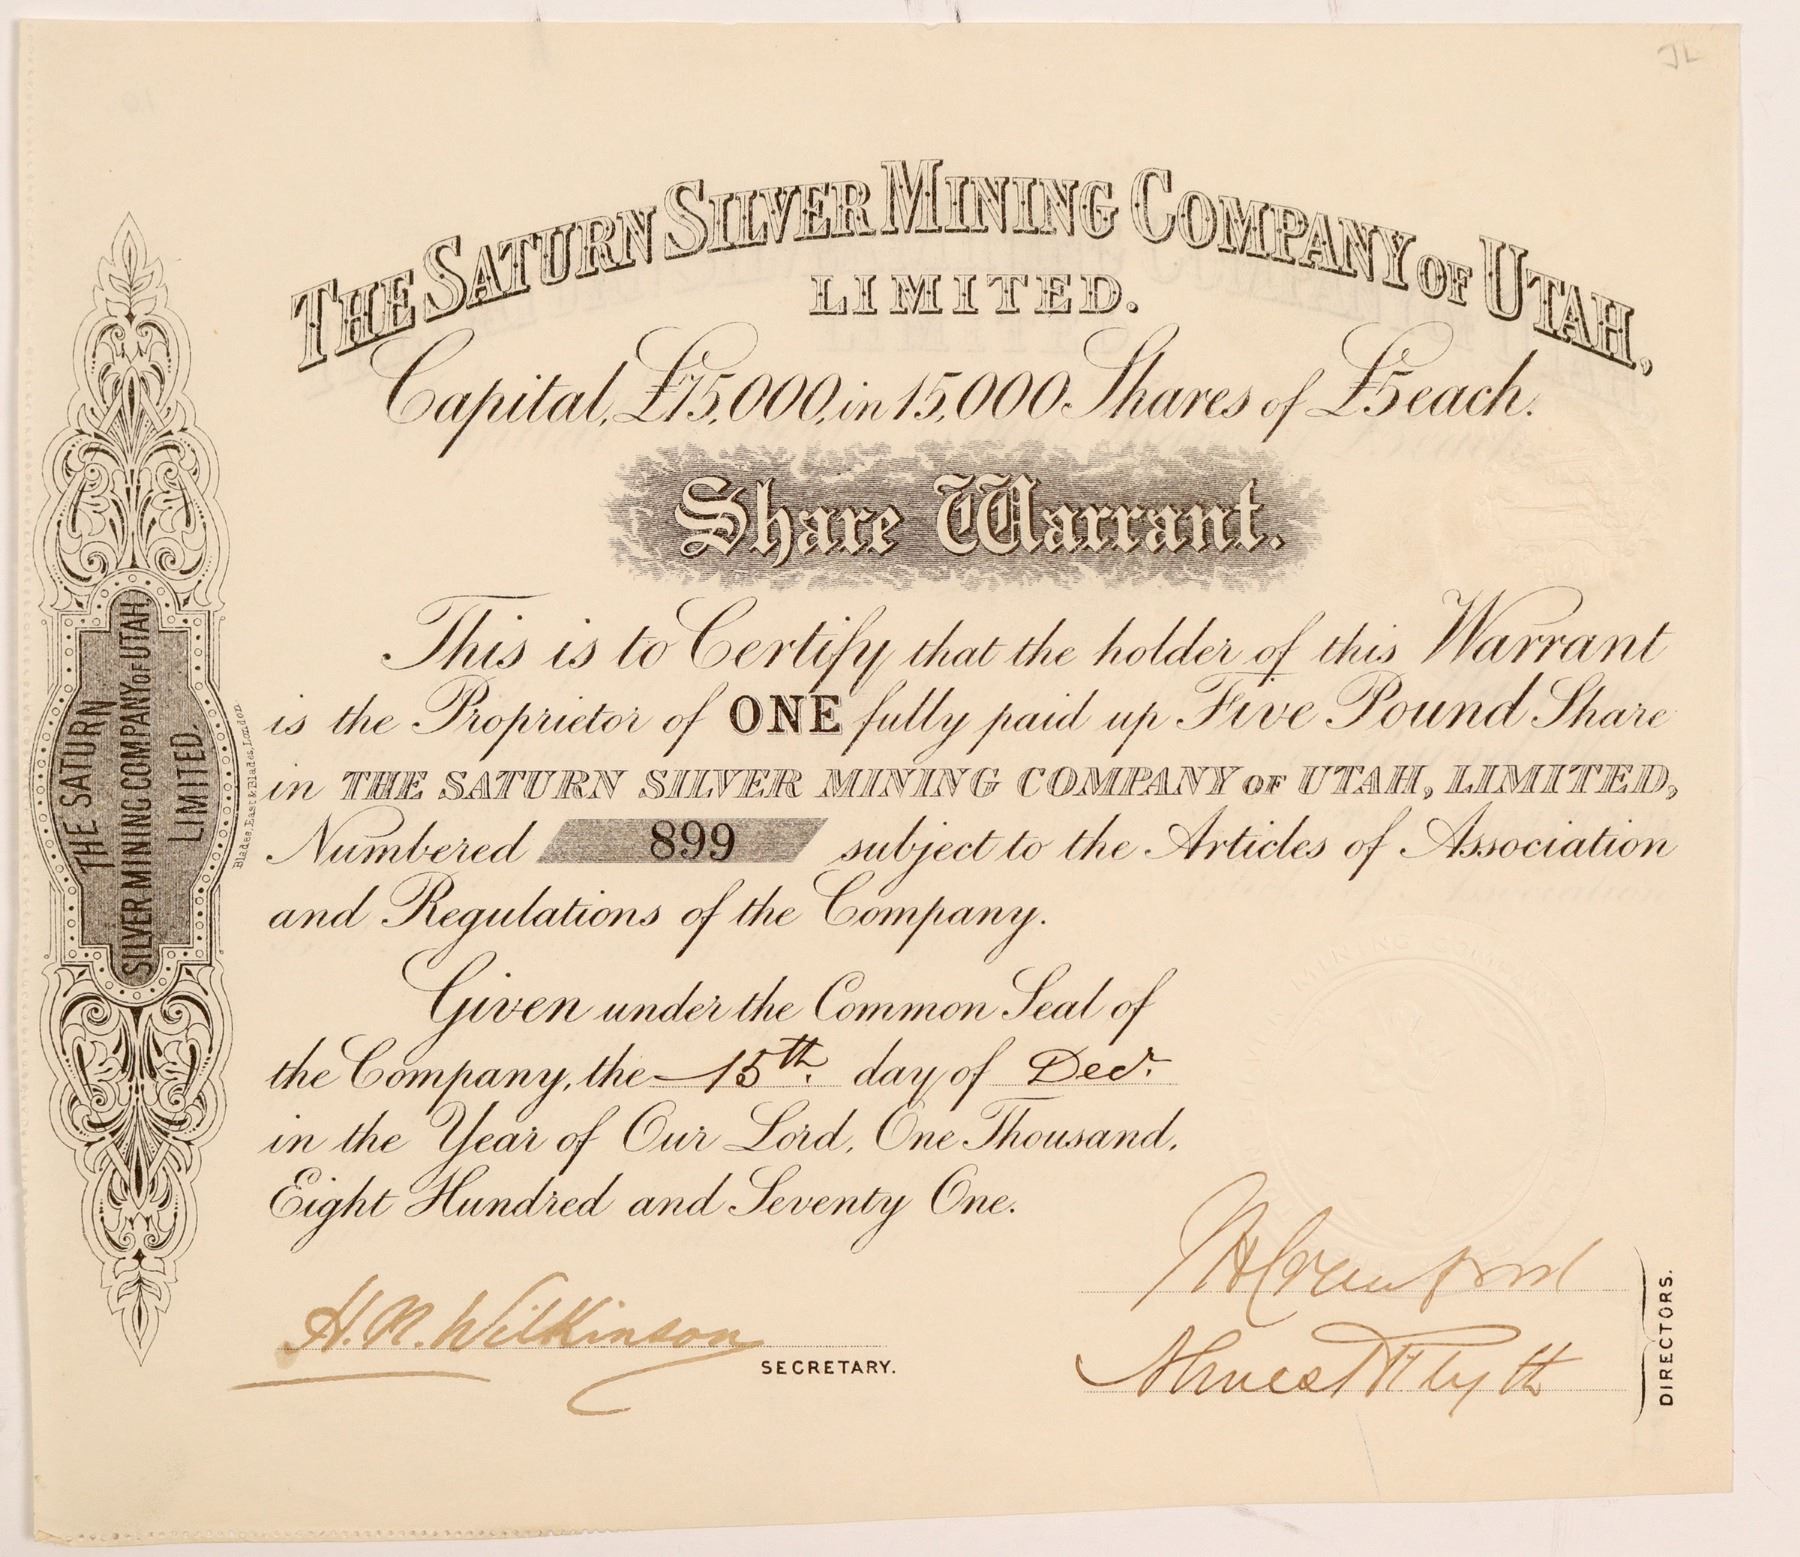 THE SATURN SILVER MINING COMPANY OF UTAH,
LIMITED.
Capital, £75,000, in 15,000 Shares of £5 each.
Share Warrant.
This is to Certify that the holder of this Warrant
is the Proprietor of ONE fully paid up Five Pound Share
in THE SATURN SILVER MINING COMPANY OF UTAH, LIMITED,
Numbered 899 subject to the Articles of Association
and Regulations of the Company.
Given under the Common Seal of
the Company, the 15th. day of Decr.
in the Year of Our Lord, One Thousand,
Eight Hundred and Seventy One.
H. N. Wilkinson
SECRETARY.
Crawford
Blyth
DIRECTORS.
THE SATURN
SILVER MINING COMPANY OF UTAH,
LIMITED.
Blades, East & Blades, London.
MINING